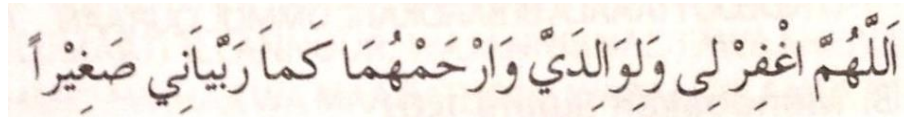 اَللَّهُمَّ اغْفِرْ لِى وَلِوَالِدَيَّ وَارْحَمْهُمَا كَمَا رَبَّيَانِي صَغِيْرًا